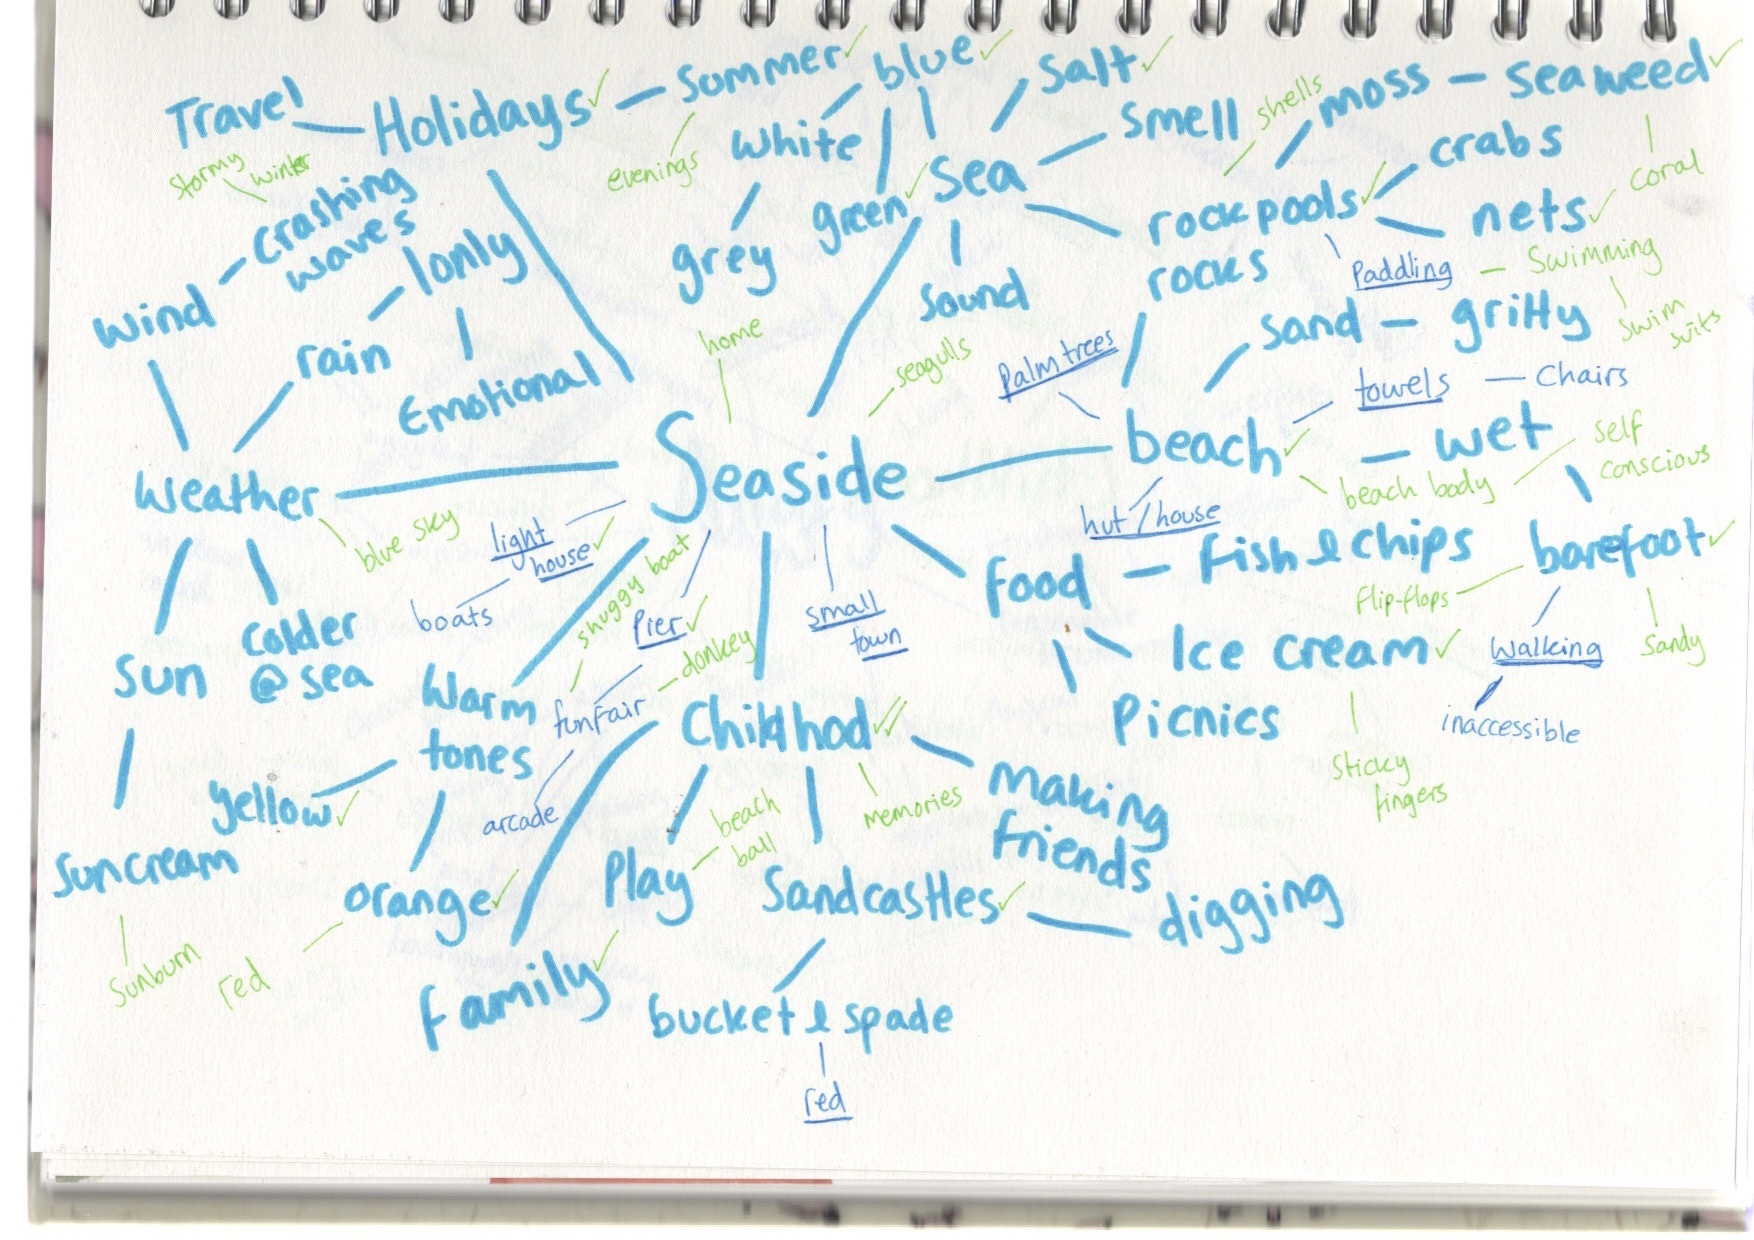 Travel
Holidays
Summer
blue
Salt
moss
Seaweed
shells
Smell
crabs
coral
stormy
winter
evenings
White
Sea
green
rockpools
nets
rocks
crashing
waves
lonly
grey
Sound
Paddling
Swimming
swim
suits
wind
rain
Emotional
home
seagulls
Palm trees
sand
gritty
towels
Chairs
Weather
Seaside
beach
wet
self
conscious
beach body
blue sky
light
house
boats
shuggy boat
Pier
small
town
hut/house
food
Fish & chips
barefoot
flip-flops
Walking
sandy
inaccessible
Sun
colder
@ sea
Warm
tones
funfair
donkey
Childhod
Ice cream
Picnics
sticky
fingers
yellow
arcade
beach
ball
memories
making
friends
Suncream
orange
Play
Sandcastles
digging
Sunburn
red
family
bucket & spade
red